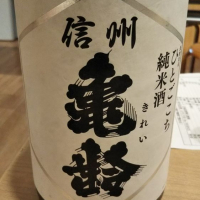 信州
亀齢
きれい
純米酒
ひとごこち